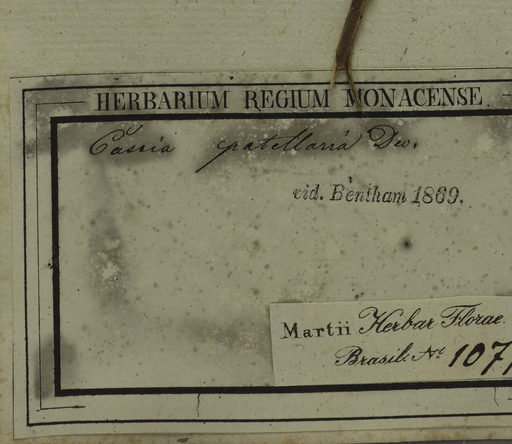 HERBARIUM REGIUM MONACENSE.
Cassia patellaria Dec.
vid. Bentham 1869.
Martii Herbar. Florae
Brasil. No